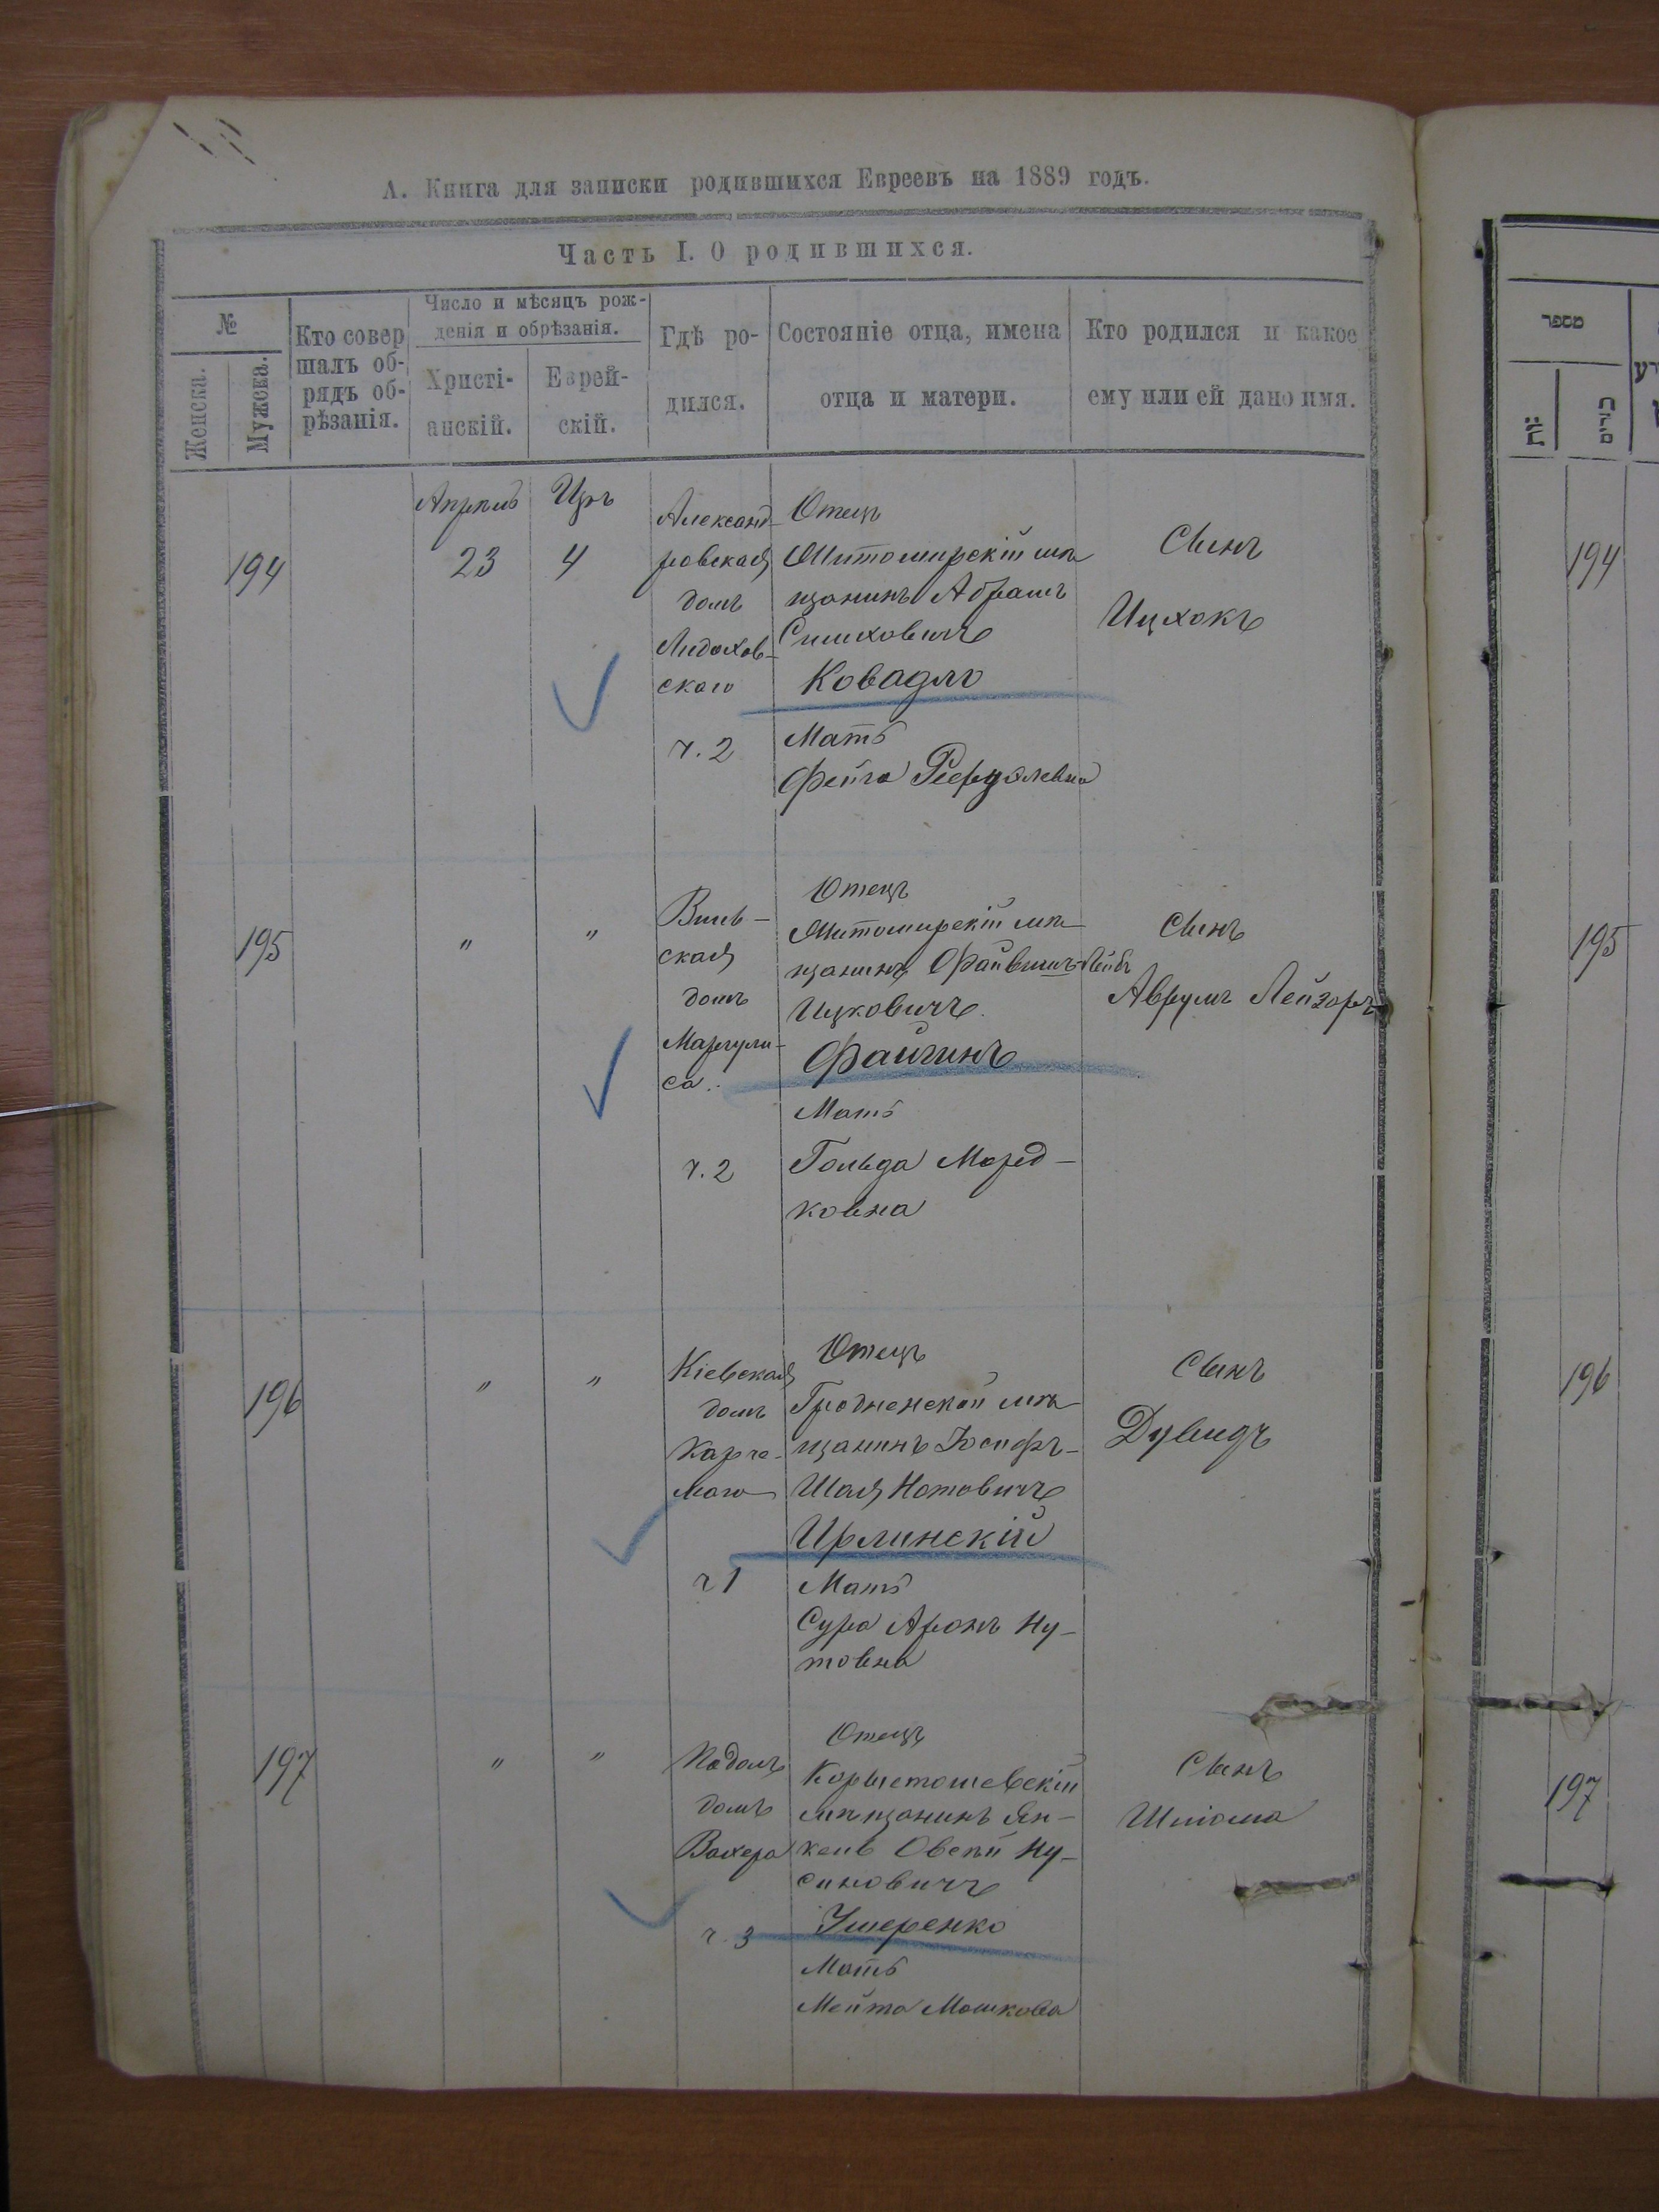 А. Книга для записки родившихся Евреевъ на 1889 годъ.
Часть I. О родившихся.
№
Женска.
Мужска.
Кто совер
шалъ об-
рядъ об-
рѣзанія.
Число и мѣсяцъ рож-
денія и обрѣзанія.
Христі-
анскій.
Еврей-
скій.
Гдѣ ро-
дился.
Состояніе отца, имена
отца и матери.
Кто родился и какое
ему или ей дано имя.
194
Апрѣль
23
Иръ
4
Александ-
ровская
домъ
скаго
ч. 2
Отецъ
Житомирскій мѣ
щанинъ Абрамъ
Симховичъ
Ковадло
Мать
Фейга
Сынъ
Ицхокъ
195
"
"
ская
домъ
Маргули-
са.
ч. 2
Отецъ
Житомирскій мѣ-
щанинъ Файвишъ-Лейбъ
Ицковичъ
Файгинъ
Мать
Гольда Морд-
ковна
Сынъ
Аврумъ Лейзоръ
196
"
"
Кіевская
домъ
Отецъ
Гродненской мѣ-
щанинъ Іосифъ-
Шая Нотовичъ
Ирлинскій
ч 1
Мать
Сура Аронъ Ну-
товна
Сынъ
Дувидъ
197
"
"
Подолъ
домъ
Вахера
ч. 3
Отецъ
Коростошевскій
мѣщанинъ Ян-
кель Овсѣй Ну-
синовичъ
Ушеренко
Мать
Мейта Мошкова
Сынъ
Шліома
מספר
194
195
196
197